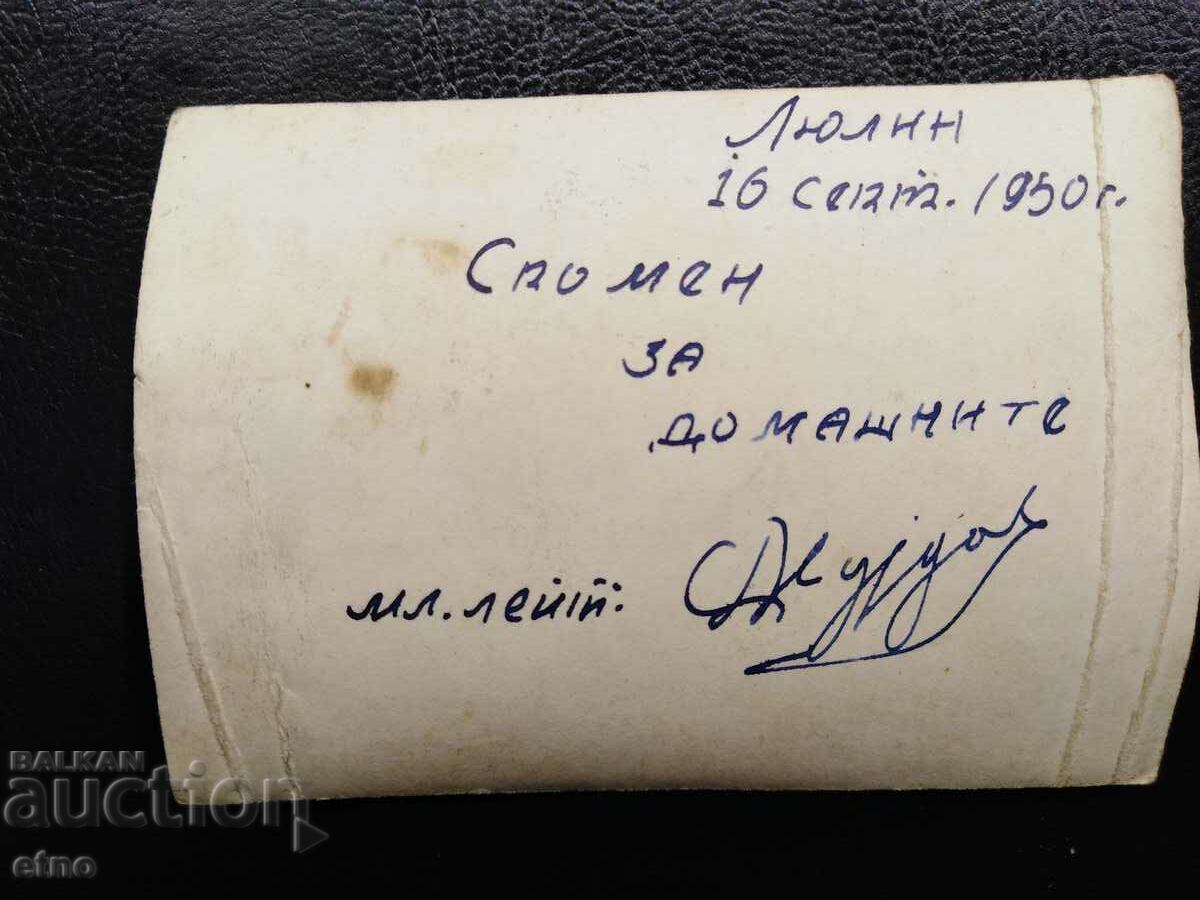 Люлин
16 септ. 1950 г.
Спомен
за
домашните
мл. лейт.
BALKAN
auction
etno